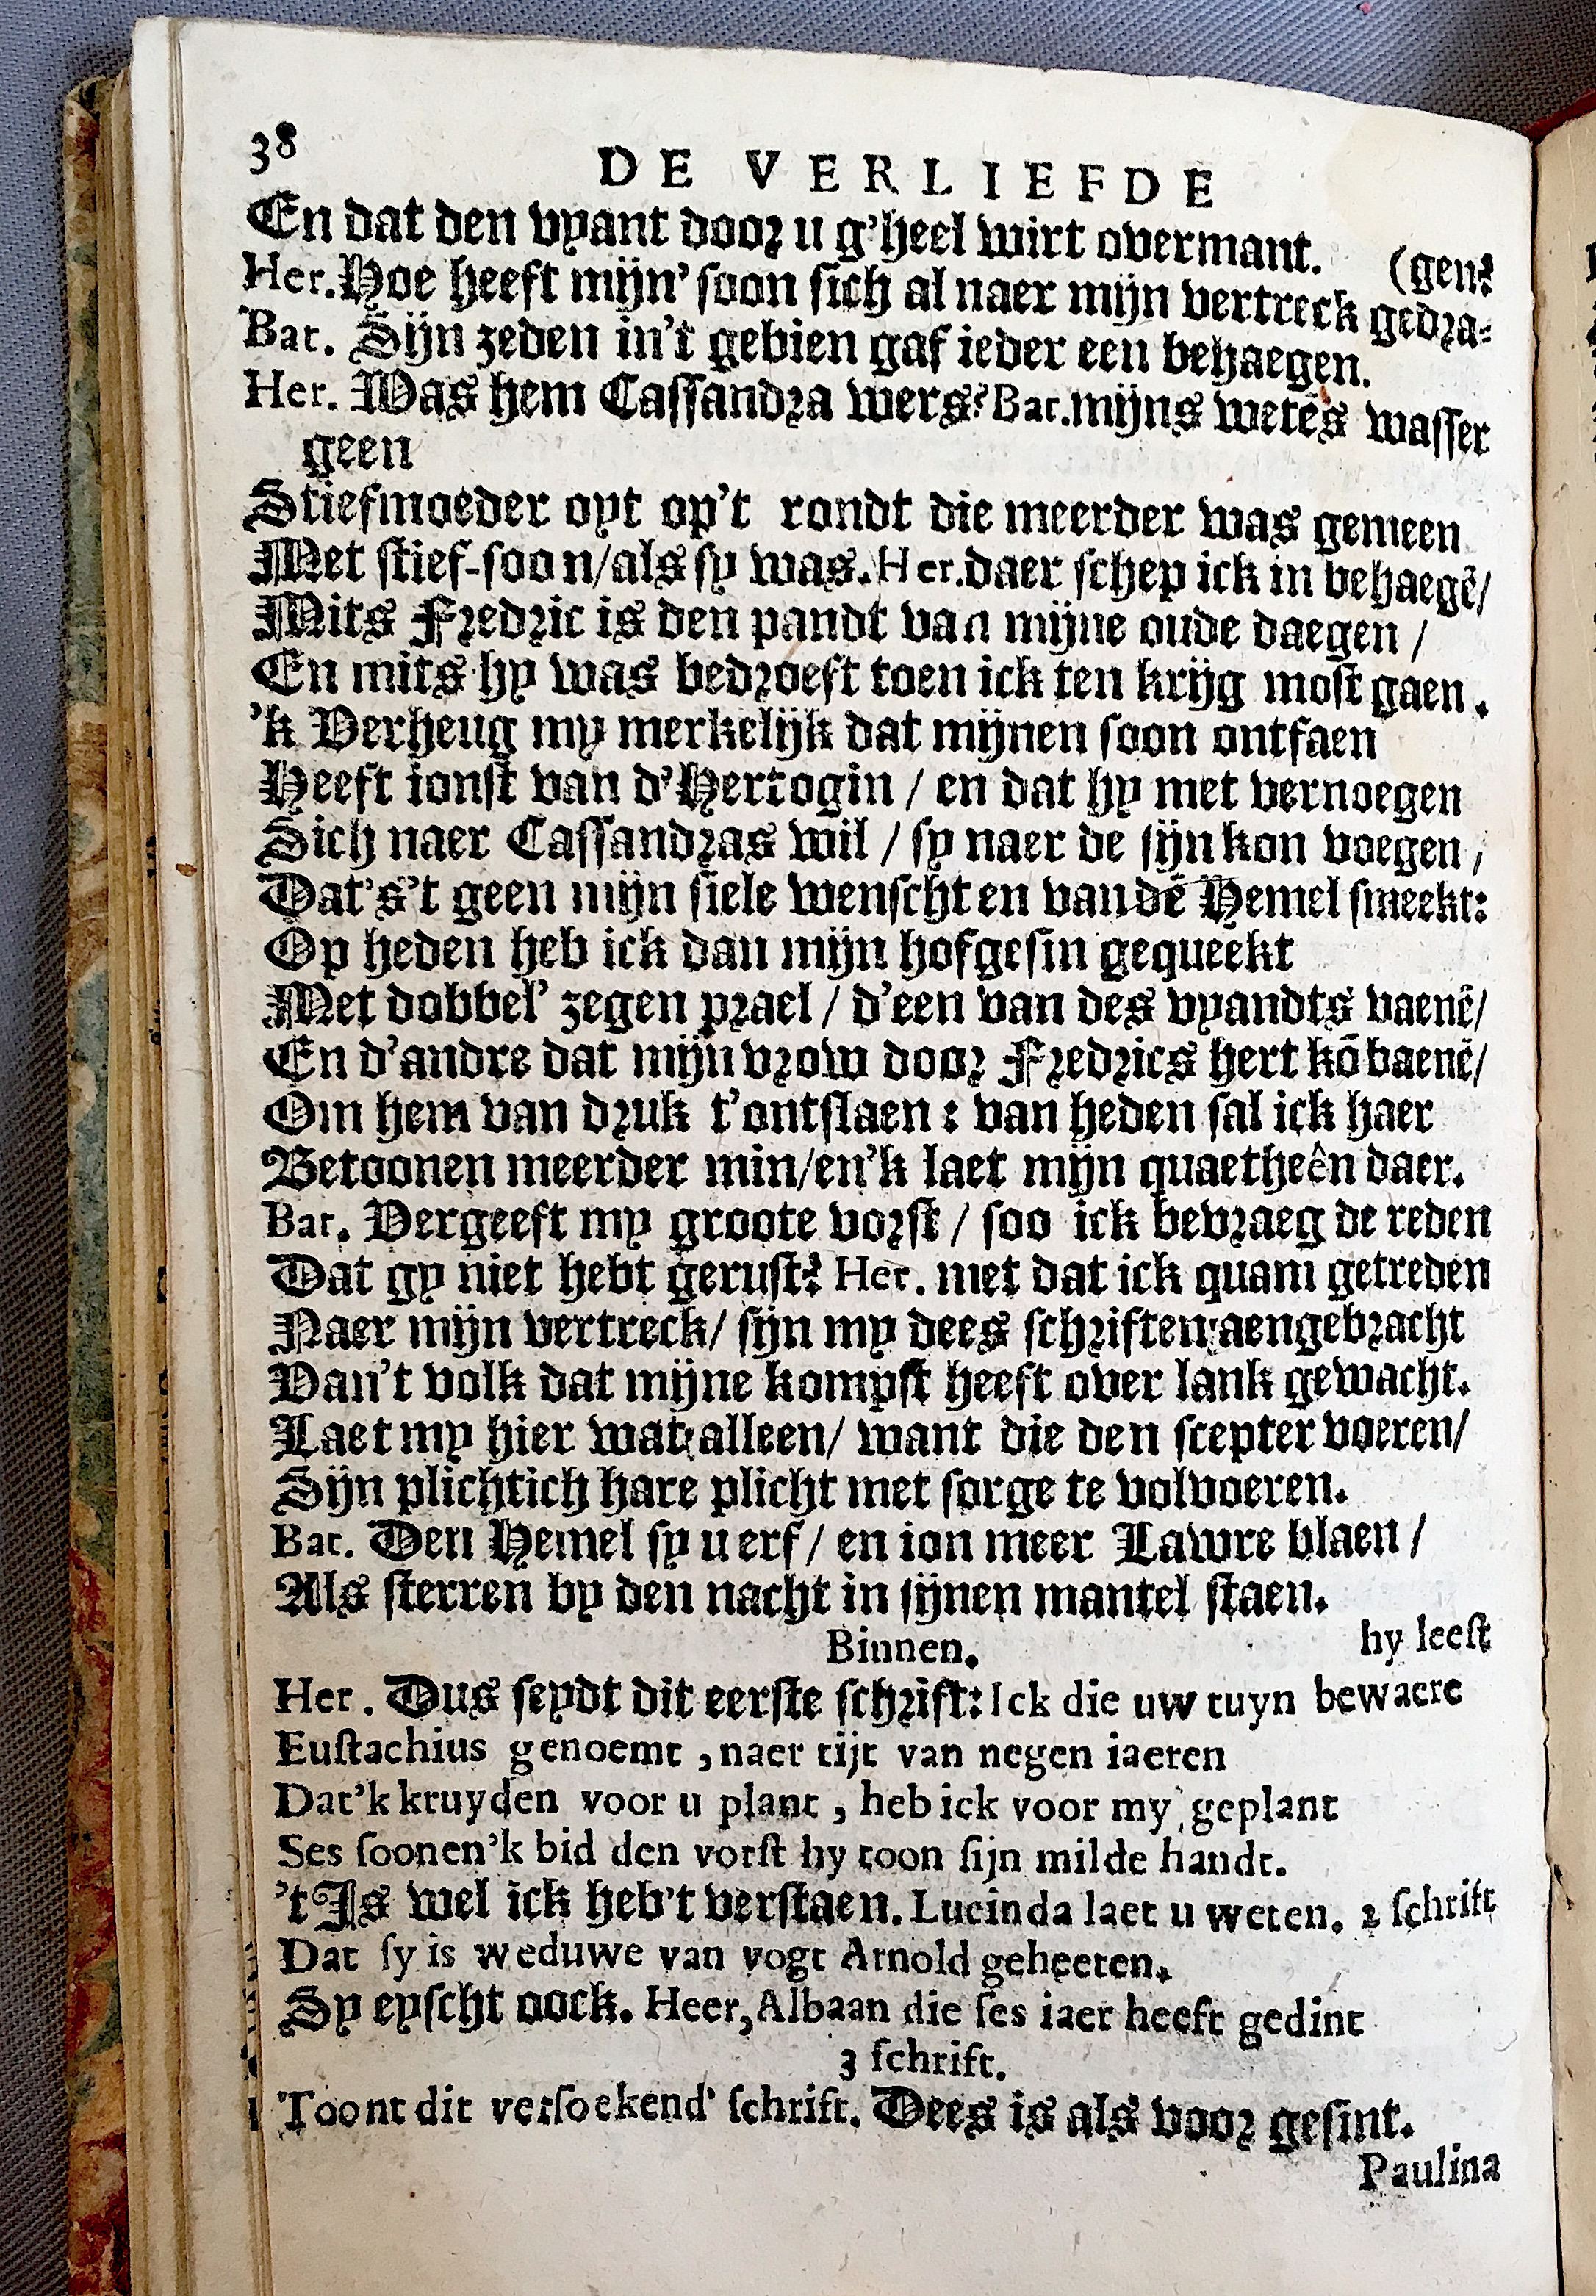 38
DE VERLIEFDE
En dat den vyant door u g'heel wirt overmant.
(gen?
Her. Hoe heeft mijn' soon sich al naer mijn vertreck gedra-
Bat. Sijn zeden in't gebien gaf ieder een behaegen.
Her. Was hem Cassandra wers? Bat. mijns wetẽs wasser
geen
Stiefmoeder oyt op't rondt die meerder was gemeen
Met stief-soon/als sy was. Her. daer schep ick in behaegẽ/
Mits Fredric is den pandt van mijne oude daegen /
En mits hy was bedroeft toen ick ten krijg most gaen.
'k Verheug my merkelijk dat mijnen soon ontfaen
Heeft ionst van d'Hertogin / en dat hy met vernoegen
Sich naer Cassandras wil / sy naer de sijn kon voegen,
Dat's't geen mijn siele wenscht en van dẽ Hemel smeekt:
Op heden heb ick dan mijn hofgesin gequeekt
Met dobbel' zegen prael / d'een van des vyandts vaenẽ/
En d'andre dat mijn vrow door Fredrics hert kõ baenẽ/
Om hem van druk t'ontslaen : van heden sal ick haer
Betoonen meerder min/en'k laet mijn quaetheên daer.
Bat. Vergeeft my groote vorst / soo ick bevraeg de reden
Dat gy niet hebt gerust? Her. met dat ick quam getreden
Naer mijn vertreck/ sijn my dees schriften aengebracht
Van't volk dat mijne kompst heeft over lank gewacht.
Laet my hier wat alleen/ want die den scepter voeren/
Sijn plichtich hare plicht met sorge te volvoeren.
Bat. Den Hemel sy u erf / en ion meer Lawre blaen /
Als sterren by den nacht in sijnen mantel staen.
Binnen. hy leeſt
Her. Dus seydt dit eerste schrift: Ick die uw tuyn bewaere
Euſtachius genoemt , naer tijt van negen iaeren
Dat'k kruyden voor u plant , heb ick voor my geplant
Ses ſoonen'k bid den vorſt hy toon ſijn milde handt.
't Is wel ick heb't verstaen. Lucinda laet u weten. 2 ſchrift
Dat ſy is weduwe van vogt Arnold geheeten.
Sy eyscht oock. Heer, Albaan die ſes iaer heeft gedint
3 ſchrift.
Toont dit verſoekend' ſchrift. Dees is als voor gesint.
Paulina